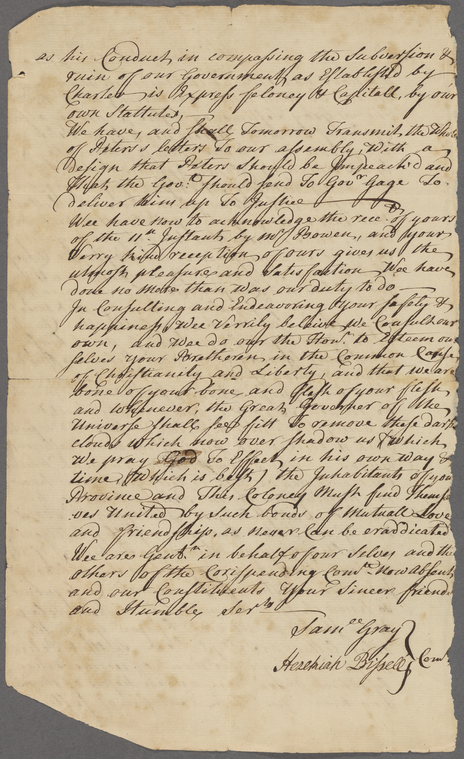 as his Conduct, in compassing the Subversion &
ruin of our Government, as Establish'd by
Charter is Express feloney & Capitall, by our
own Stattutes,
We have, and shall Tomorrow Transmit, the
of Peters's Letters To our assembly, With a
design that Peters should be Impeach'd and
that the Gov.r should send To Gov.r Gage To
deliver him up To Justice
Wee have now to acknowledge the rec.t of yours
of the 11.th Instant, by Mr. Bowen, and your
Verry Kind reception of ours gives us the
utmost pleasure and Satisfaction We have
done no More than was our duty to do
In Consulting and Endeavoring your Safety &
happiness, Wee Verrily believe we Consult our
own, and wee do our the Hon.r to Esteem our
selves your Bretheren, in the Common Cause
of Christianity and Liberty, and that we are
bone of your bone and flesh of your flesh
and whenever, the Great Governer of the
Universe shall see fitt To remove these dark
clouds which now over shadow us, (which
we pray God To Effect, in his own way &
time, which is best) the Inhabitants of your
Province and This Coloney Must find Themsel
ves United by such bonds of Mutuall Love
and friendship, as never Can be eraddicated
Wee are Gent.n in behalf of our Selves and the
others of the Corispending Com.tee Now absent
and our Constituents Your Sincer friends
and Humble Ser.ts
Sam.ll Gray
Hezekiah Bissell } Com.tee